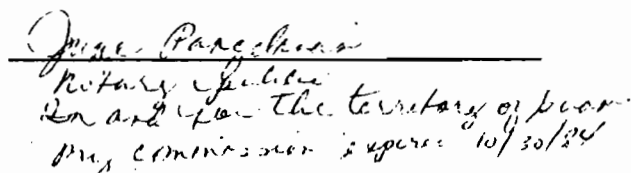 Notary Public
In and for the territory of Guam
My commission expires 10/30/84